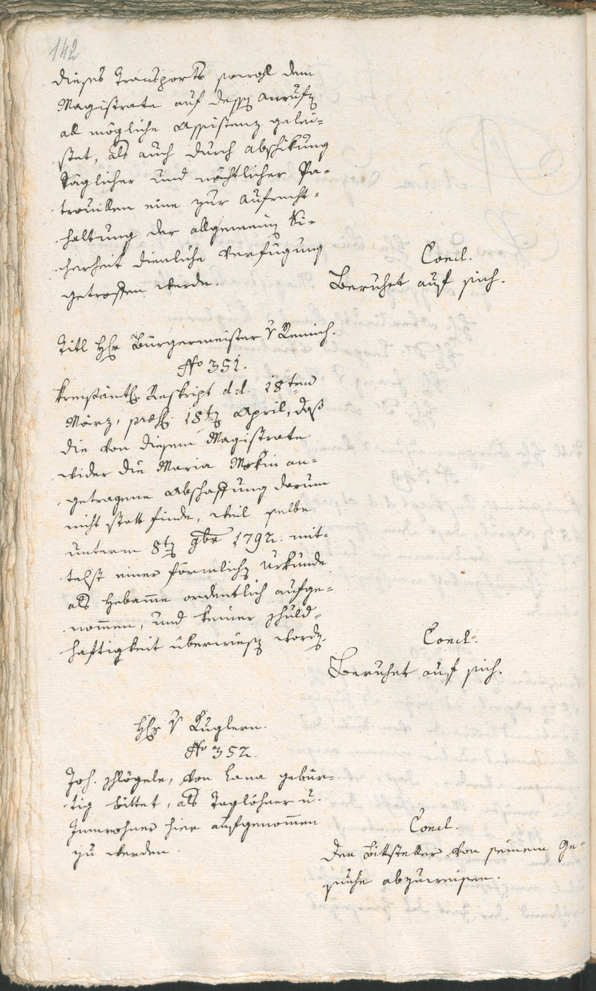 142
dieses Transports sowohl dem
Magistrate auf dessen Anrufen
all mögliche Assistenz gelei-
stet, als auch durch Abschikung
täglicher und nächtlicher Pa-
trouillen eine zur Aufrecht-
haltung der allgemeinen Si-
cherheit dienliche Verfügung
getroffen werde.
Concl.
Beruhet auf sich.
Titl Hh. Bürgermeister v Remich.
No 351.
Kreisämtl. Reskript d.d. 18ten
März, præs. 18t. April, daß
die von diesem Magistrate
wider die Maria
angetragene Abschaffung darum
nicht statt finde, weil selbe
unterm 8t. 9bre 1792. mit-
telst einer förmlichen Urkunde
als Hebamme ordentlich aufge-
nommen, und keiner Schuld-
haftigkeit überwiesen worden.
Concl.
Beruhet auf sich.
Hh. v Kuglern.
No 352.
Joh. Schlögele, von Lana gebür-
tig bittet, als Taglöhner u.
Innwohner hier aufgenommen
zu werden.
Concl.
Der Bittsteller von seinem Ge-
suche abzuweisen.